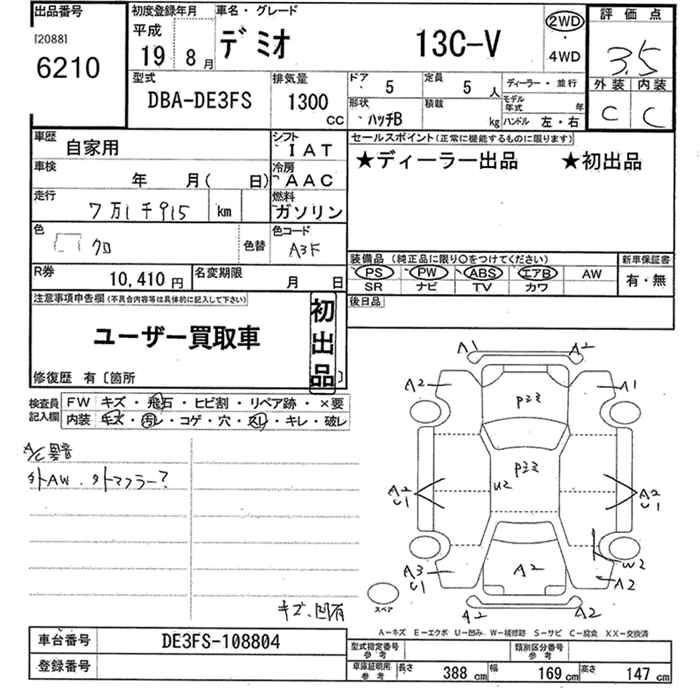 出品番号
[2088]
6210
初度登録年月
平成
19 8月
車名・グレード
デミオ 13C-V
2WD
・
4WD
評価点
3.5
外装 内装
C C
型式
DBA-DE3FS
排気量
1300
CC
ドア 5
定員 5 人
形状 ハッチB
積載 kg
ディーラー・並行
モデル年式 年
ハンドル 左・右
車歴 自家用
シフト IAT
車検 年 月( 日)
冷房 AAC
走行 7万1千915 km
燃料 ガソリン
色 クロ
色替
色コード A3F
R券 10,410円
名変期限 月 日
セールスポイント(正常に機能するものに限ります)
★ディーラー出品 ★初出品
装備品(純正品に限り○をつけてください)
PS PW ABS エアB AW
SR ナビ TV カワ
新車保証書
有・無
後日品
注意事項申告欄(不具合内容等は具体的に記入して下さい)
ユーザー買取車
初出品
修復歴 有〔箇所 〕
検査員記入欄
FW キズ・飛石・ヒビ割・リペア跡・×要
内装 キズ・汚レ・コゲ・穴・スレ・キレ・破レ
A/C異音
外AW.外マフラー?
キズ、凹有
A1 A2
A2 A1
A2 U1
U2
A2 U1
A3 U1
A2
W2
A2
A2 A2
スペア
A−キズ E−エクボ U−凹み W−補修跡 S−サビ C−腐食 XX−交換済
車台番号 DE3FS-108804
登録番号
型式指定番号 参考
類別区分番号 参考
車庫証明用 参考
長さ 388 cm 幅 169 cm 高さ 147 cm